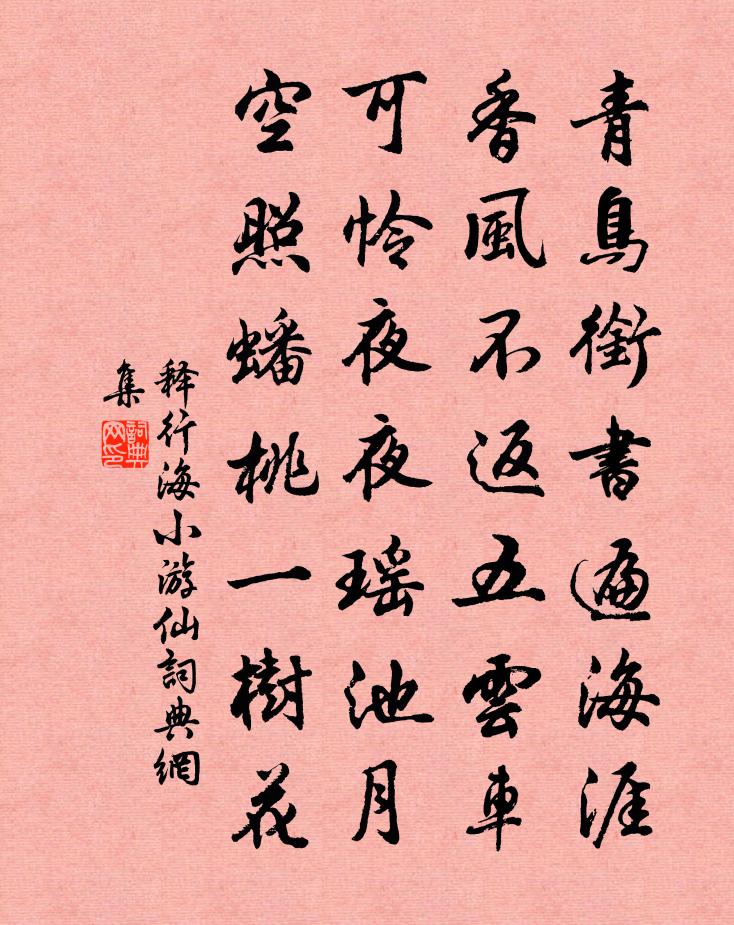 青鳥銜書遍海涯
香風不返五雲車
可怜夜夜瑶池月
空照蟠桃一樹花
释行海小游仙詞典網
集
詞典
网印